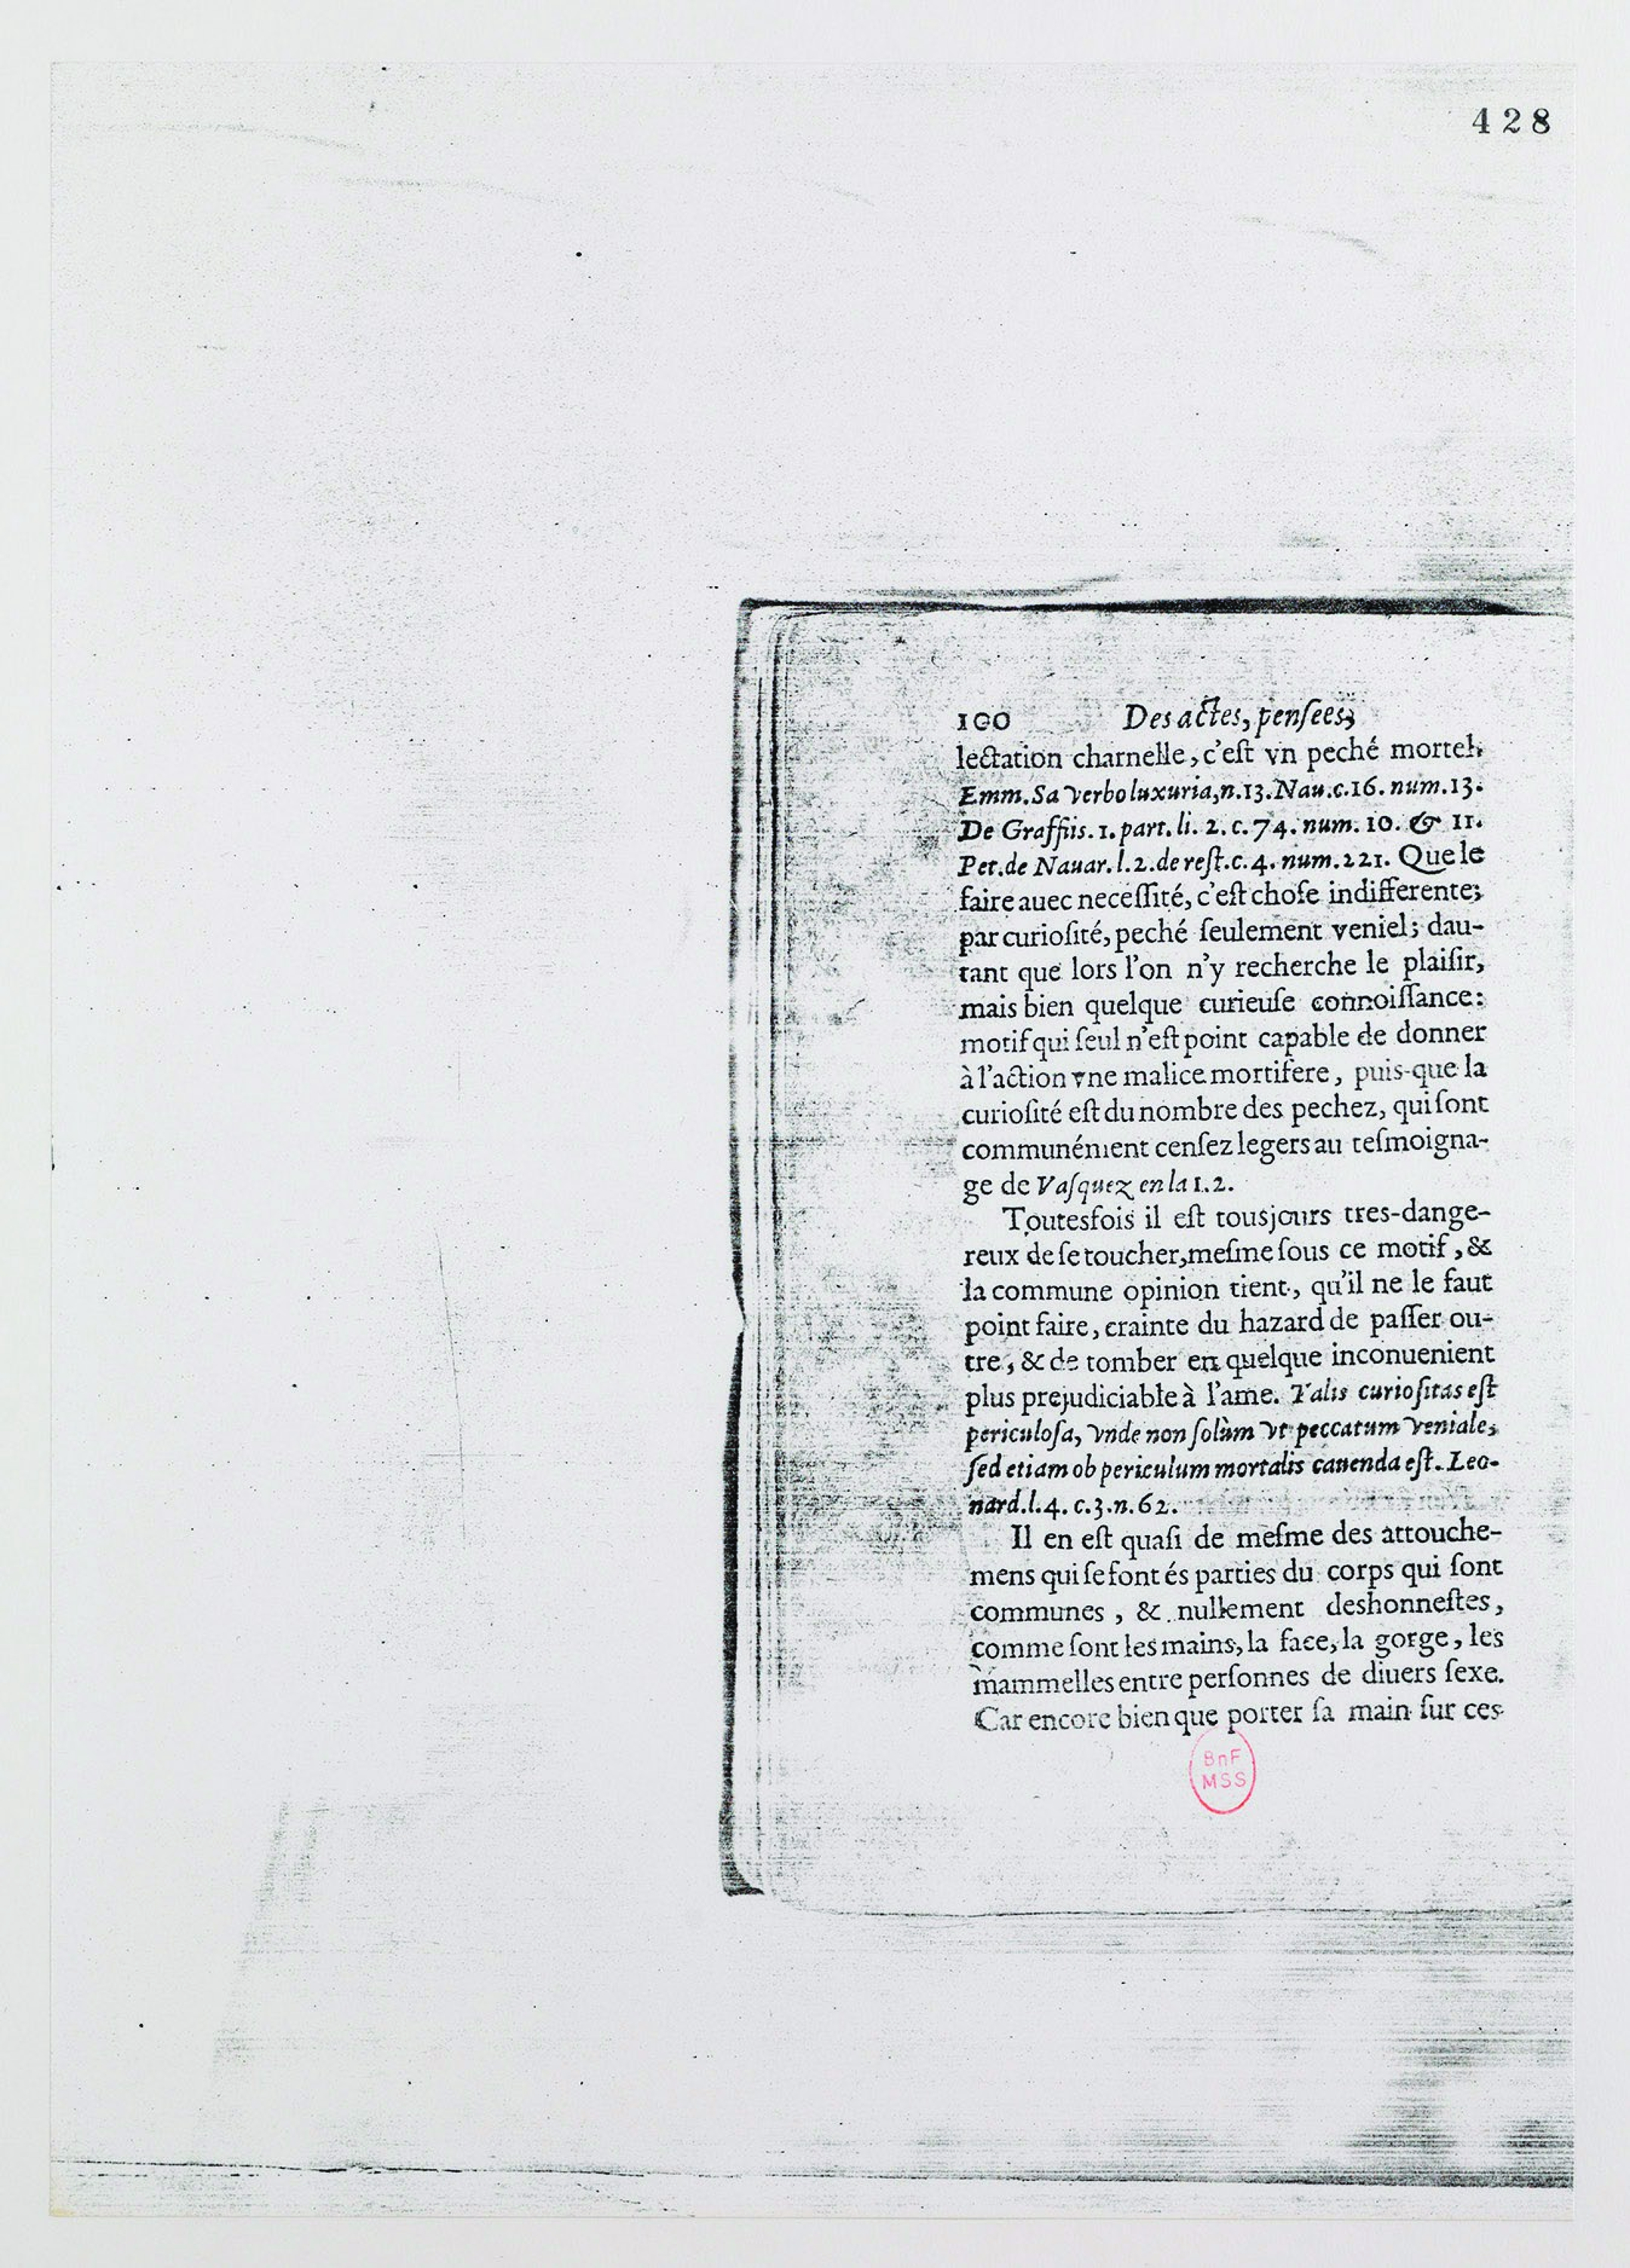 428
100 Des actes, pensees,
lectation charnelle, c'est vn peché mortel.
Emm. Sa verbo luxuria, n.13. Nau. c.16. num.13.
De Graffiis. 1. part. li. 2. c. 74. num. 10. & 11.
Pet. de Nauar. l. 2. de rest. c. 4. num. 221. Que le
faire auec necessité, c'est chose indifferente;
par curiosité, peché seulement veniel; dau-
tant que lors l'on n'y recherche le plaisir,
mais bien quelque curieuse connoissance:
motif qui seul n'est point capable de donner
à l'action vne malice mortifere, puis-que la
curiosité est du nombre des pechez, qui sont
communément censez legers au tesmoigna-
ge de Vasquez en la 1.2.
Toutesfois il est tousjours tres-dange-
reux de se toucher, mesme sous ce motif, &
la commune opinion tient, qu'il ne le faut
point faire, crainte du hazard de passer ou-
tre, & de tomber en quelque inconuenient
plus prejudiciable à l'ame. Talis curiositas est
periculosa, vnde non solùm vt peccatum veniale,
sed etiam ob periculum mortalis cauenda est. Leo-
nard. l. 4. c. 3. n. 62.
Il en est quasi de mesme des attouche-
mens qui se font és parties du corps qui sont
communes, & nullement deshonnestes,
comme sont les mains, la face, la gorge, les
mammelles entre personnes de diuers sexe.
Car encore bien que porter sa main sur ces
BnF
MSS